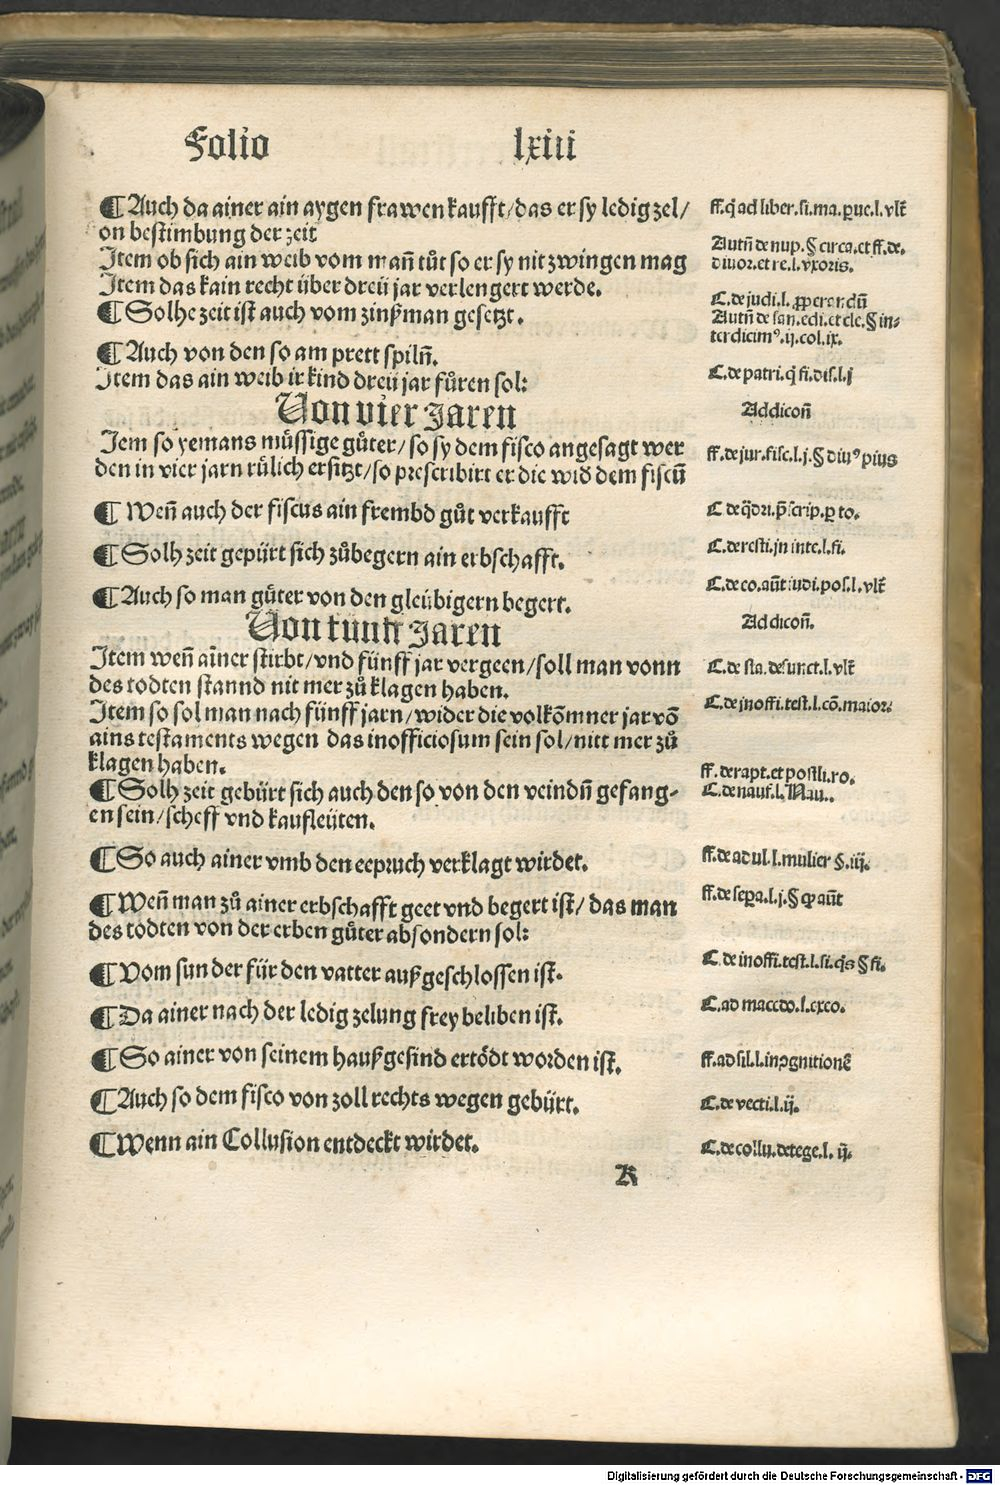 Folio lxiii
¶ Auch da ainer ain aygen frawen kaufft/das er sy ledig zel/
on bestimbung der zeit
Item ob sich ain weib vom mañ tůt so er sy nit zwingen mag
Item das kain recht über dreü jar verlengert werde.
¶ Solhe zeit ist auch vom zinßman gesetzt.
¶ Auch von den so am prett spilñ.
Item das ain weib ir kind dreü jar fůren sol:
Von vier Jaren
Jem so yemans müssige gůter/so sy dem fisco angesagt wer
den in vier jarn rülich ersitzt/so prescribirt er die wid dem fiscũ
¶ Weñ auch der fiscus ain frembd gůt verkaufft
¶ Solh zeit gepürt sich zůbegern ain erbschafft.
¶ Auch so man gůter von den gleübigern begert.
Von fünff Jaren
Item weñ aĩner stirbt/vnd fünff jar vergeen/soll man vonn
des todten stannd nit mer zů klagen haben.
Item so sol man nach fünff jarn/wider die volkõmner jar võ
ains testaments wegen das inofficiosum sein sol/nitt mer zů
klagen haben.
¶ Solh zeit gebürt sich auch den so von den veindñ gefang-
en sein/scheff vnd kaufleüten.
¶ So auch ainer vmb den eepruch verklagt wirdet.
¶ Weñ man zů ainer erbschafft geet vnd begert ist/das man
des todten von der erben gůter absondern sol:
¶ Vom sun der für den vatter außgeschlossen ist.
¶ Da ainer nach der ledig zelung frey beliben ist.
¶ So ainer von seinem haußgesind ertödt worden ist.
¶ Auch so dem fisco von zoll rechts wegen gebürt.
¶ Wenn ain Collusion entdeckt wirdet.
K
ff. q̃ ad liber. si. ma. ꝑue. l. vlt̃
Autñ de nup. § circa. et ff. de.
diuor. et re. l. vxoris.
C. de judi. l. ꝓperandũ
Autñ de san. edi. et ele. § in-
terdicimꝰ. ij. col. ix.
C. de patri. q̃ fi. dis. l. j
Addicoñ
ff. de jur. fisc. l. j. § diuꝰ pius
C de q̃dri. p̃scrip. ꝑ to.
C. de resti. jn inte. l. fi.
C. de co. aũt iudi. pos. l. vlt̃
Addicoñ.
C. de sta. defunct. l. vlt̃
C. de jnoffi. test. l. cõ. maiori
ff. de rapt. et postli. ro.
C. de nauf. l. Nau..
ff. de adul. l. mulier §. iij.
ff. de sepa. l. j. § ꝙ aũt
C. de inoffi. test. l. si. q̃s § fi.
C. ad macedo. l. exco.
ff. ad sil. l. in ꝯgnitionẽ
C. de vecti. l. ij.
C. de collu. detege. l. ij.
Digitalisierung gefördert durch die Deutsche Forschungsgemeinschaft - DFG